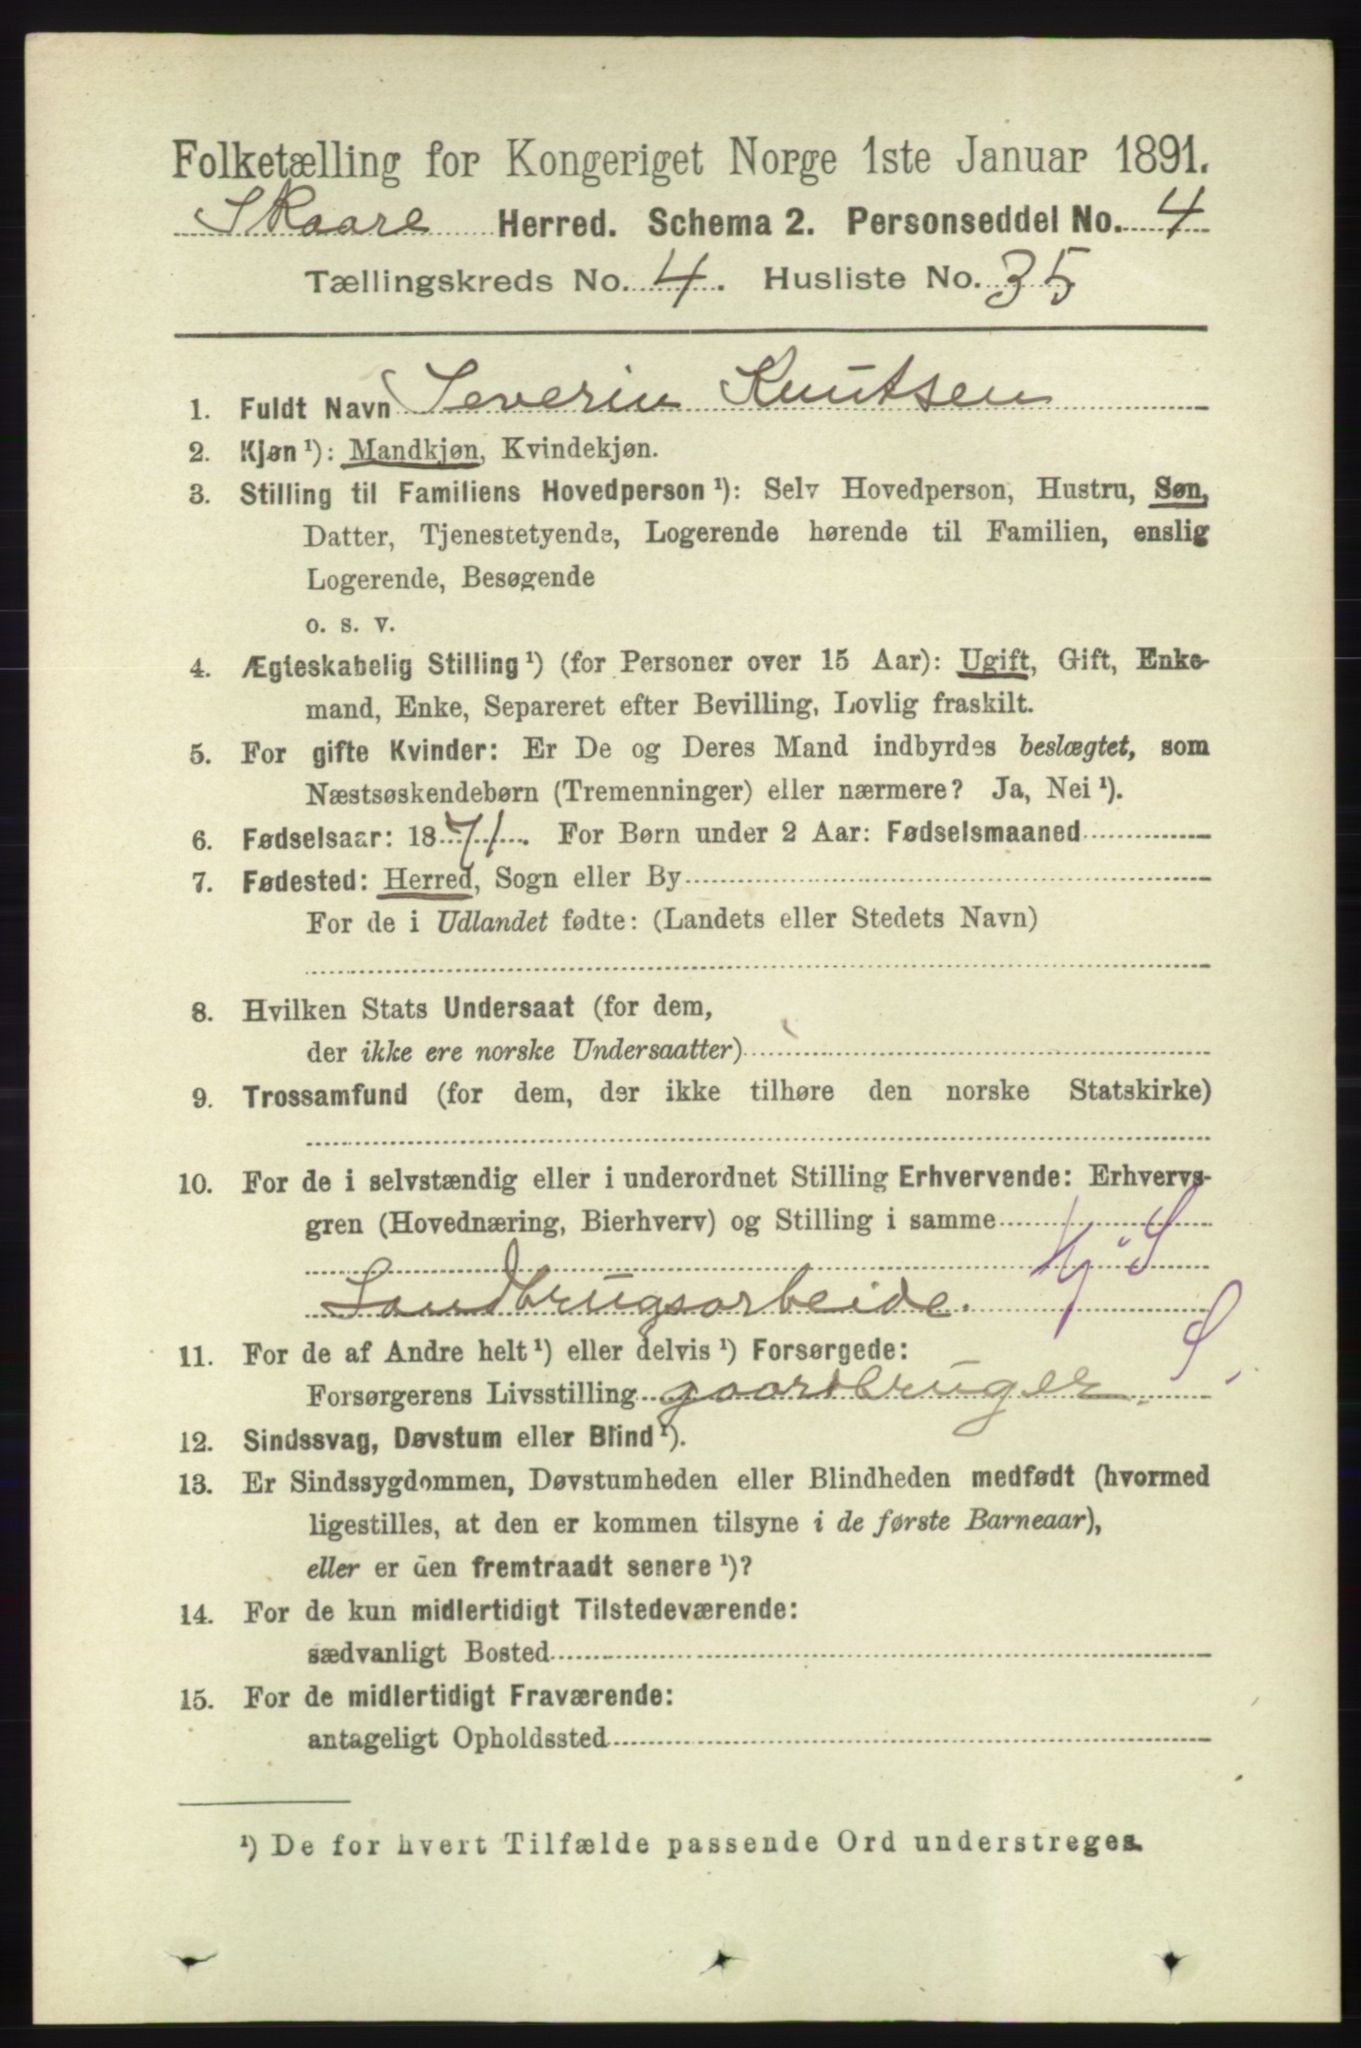 Folketælling for Kongeriget Norge 1ste Januar 1891.
Skaare Herred. Schema 2. Personseddel No. 4
Tællingskreds No. 4. Husliste No. 35
1. Fuldt Navn Severin Knutsen
2. Kjøn ¹): Mandkjøn, Kvindekjøn.
3. Stilling til Familiens Hovedperson ¹): Selv Hovedperson, Hustru, Søn,
Datter, Tjenestetyende, Logerende hørende til Familien, enslig
Logerende, Besøgende
o. s. v.
4. Ægteskabelig Stilling ¹) (for Personer over 15 Aar): Ugift, Gift, Enke-
mand, Enke, Separeret efter Bevilling, Lovlig fraskilt.
5. For gifte Kvinder: Er De og Deres Mand indbyrdes beslægtet, som
Næstsøskendebørn (Tremenninger) eller nærmere? Ja, Nei ¹).
6. Fødselsaar: 1871. For Børn under 2 Aar: Fødselsmaaned
7. Fødested: Herred, Sogn eller By
For de i Udlandet fødte: (Landets eller Stedets Navn)
8. Hvilken Stats Undersaat (for dem,
der ikke ere norske Undersaatter)
9. Trossamfund (for dem, der ikke tilhøre den norske Statskirke)
10. For de i selvstændig eller i underordnet Stilling Erhvervende: Erhvervs-
gren (Hovednæring, Bierhverv) og Stilling i samme
Landbrugsarbeide.
11. For de af Andre helt ¹) eller delvis ¹) Forsørgede:
Forsørgerens Livsstilling gaardbruger. S.
12. Sindssvag, Døvstum eller Blind ¹).
13. Er Sindssygdommen, Døvstumheden eller Blindheden medfødt (hvormed
ligestilles, at den er kommen tilsyne i de første Barneaar),
eller er den fremtraadt senere ¹)?
14. For de kun midlertidigt Tilstedeværende:
sædvanligt Bosted
15. For de midlertidigt Fraværende:
antageligt Opholdssted
¹) De for hvert Tilfælde passende Ord understreges.